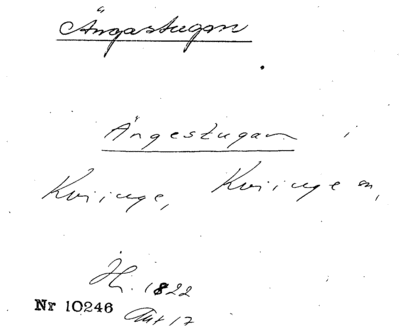 Ängastugan
Ängestugan i
Kvinge, Kvinge sn,
Hi. 1822
Nr 10246
Akt 17